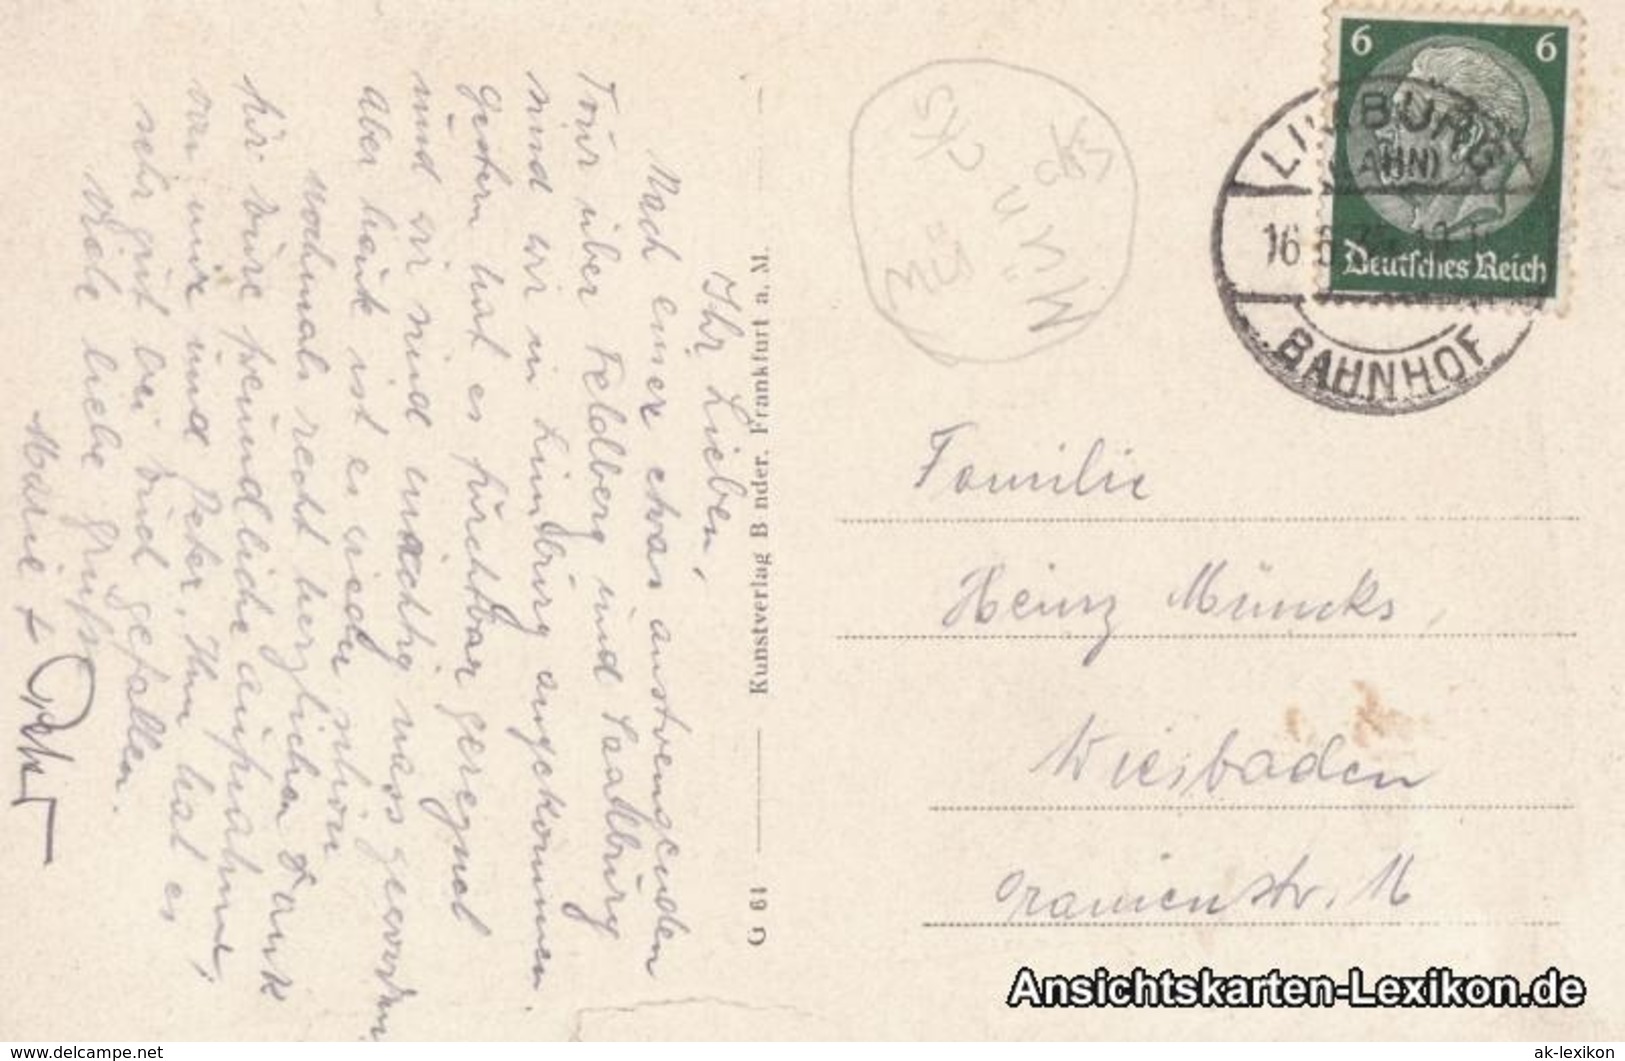 Ihr Lieben,
Nach einer etwas anstrengenden
Tour über Feldberg und Saalburg
sind wir in Limburg angekommen.
Gestern hat es furchtbar geregnet
und wir sind mächtig nass geworden
aber heute ist es wieder schön
nochmals recht herzlichen Dank
für Eure freundliche Aufnahme,
von mir und Peter. Ihm hat es
sehr gut bei Euch gefallen.
Viele liebe Grüße
Marie + Peter
G 61
Kunstverlag B nder. Frankfurt a. M.
6 6
Deutsches Reich
LIMBURG
(LAHN)
16.6.
BAHNHOF
Familie
Heinz Müncks,
Wiesbaden
Oranienstr.
Ansichtskarten-Lexikon.de
www.delcampe.net
ak-lexikon